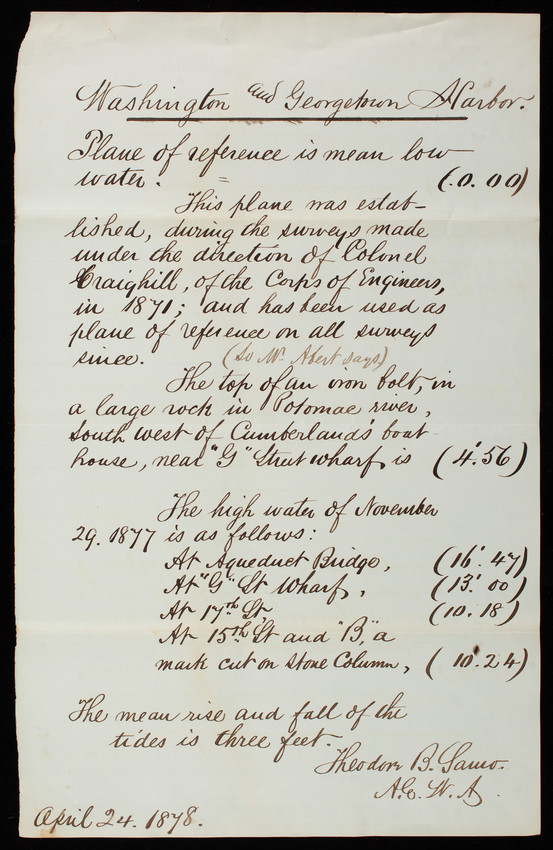 Washington and Georgetown Harbor.
Plane of reference is mean low
water. (0.00)
This plane was estab-
lished, during the surveys made
under the direction of Colonel
Craighill, of the Corps of Engineers,
in 1871; and has been used as
plane of reference on all surveys
since. (So Mr Abert says)
The top of an iron bolt, in
a large rock in Potomac river,
South west of Cumberland's boat
house, near "G" Street wharf is (4'.56)
The high water of November
29. 1877 is as follows:
At Aqueduct Bridge, (16'.47)
At "G" St Wharf, (13'.00)
At 17th St, (10.18)
At 15th St and "B", a
mark cut on Stone Column, (10'.24)
The mean rise and fall of the
tides is three feet.
Theodore B. Samo.
April 24. 1878.